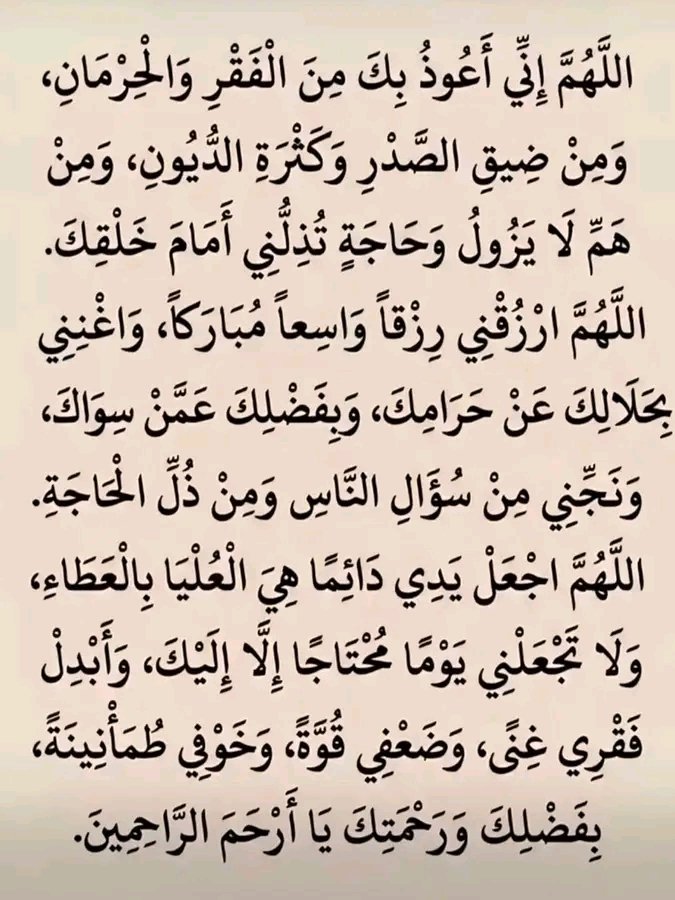 اللَّهُمَّ إِنِّي أَعُوذُ بِكَ مِنَ الْفَقْرِ وَالْحِرْمَانِ،
وَمِنْ ضِيقِ الصَّدْرِ وَكَثْرَةِ الدُّيُونِ، وَمِنْ
هَمِّ لَا يَزُولُ وَحَاجَةٍ تُذِلُّنِي أَمَامَ خَلْقِكَ.
اللَّهُمَّ ارْزُقْنِي رِزْقاً وَاسِعاً مُبَارَكاً، وَاغْنِنِي
بِحَلَالِكَ عَنْ حَرَامِكَ، وَبِفَضْلِكَ عَمَّنْ سِوَاكَ،
وَنَجِّنِي مِنْ سُؤَالِ النَّاسِ وَمِنْ ذُلِّ الْحَاجَةِ.
اللَّهُمَّ اجْعَلْ يَدِي دَائِمًا هِيَ الْعُلْيَا بِالْعَطَاءِ،
وَلَا تَجْعَلْنِي يَوْمًا مُحْتَاجًا إِلَّا إِلَيْكَ، وَأَبْدِلْ
فَقْرِي غِنًى، وَضَعْفِي قُوَّةً، وَخَوْفِي طُمَأْنِينَةً،
بِفَضْلِكَ وَرَحْمَتِكَ يَا أَرْحَمَ الرَّاحِمِينَ.